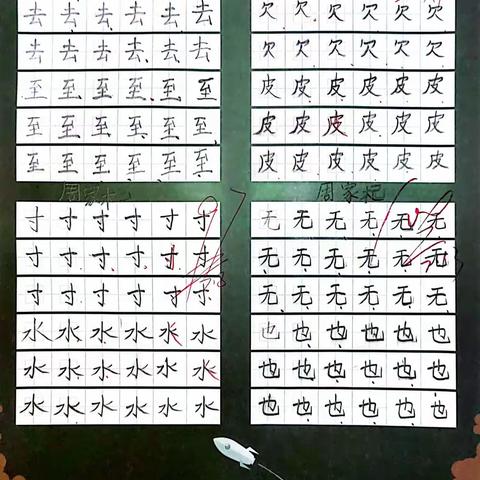 去去去去去去
去去去去去去
至至至至至至
至至至至至至
至至至至至至
欠欠欠欠欠欠
欠欠欠欠欠欠
皮皮皮皮皮皮
皮皮皮皮皮皮
皮皮皮皮皮皮
周家
寸寸寸寸寸寸
寸寸寸寸寸寸
寸寸寸寸寸寸
水水水水水水
水水水水水水
水水水水水水
周家杞
无无无无无无
无无无无无无
无无无无无无
也也也也也也
也也也也也也
也也也也也也